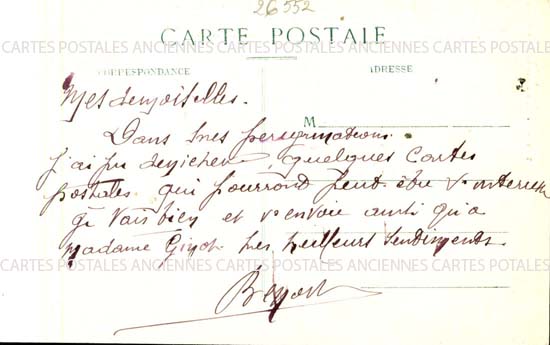 26552
CARTE POSTALE
CARTES POSTALES ANCIENNES CARTES POSTALES ANCIENNES CARTES POTALES
CORRESPONDANCE
ADRESSE
Mesdemoiselles.
M
Dans mes peregrinations
j'ai pu denicher quelques cartes
postales qui pourront peut être v. interesser
je vais bien et v. envoie ainsi qu'a
madame mes meilleurs sentiments
CARTES POSTALES ANCIENNES CARTES POSTALES ANCIENNES CARTES POTALES